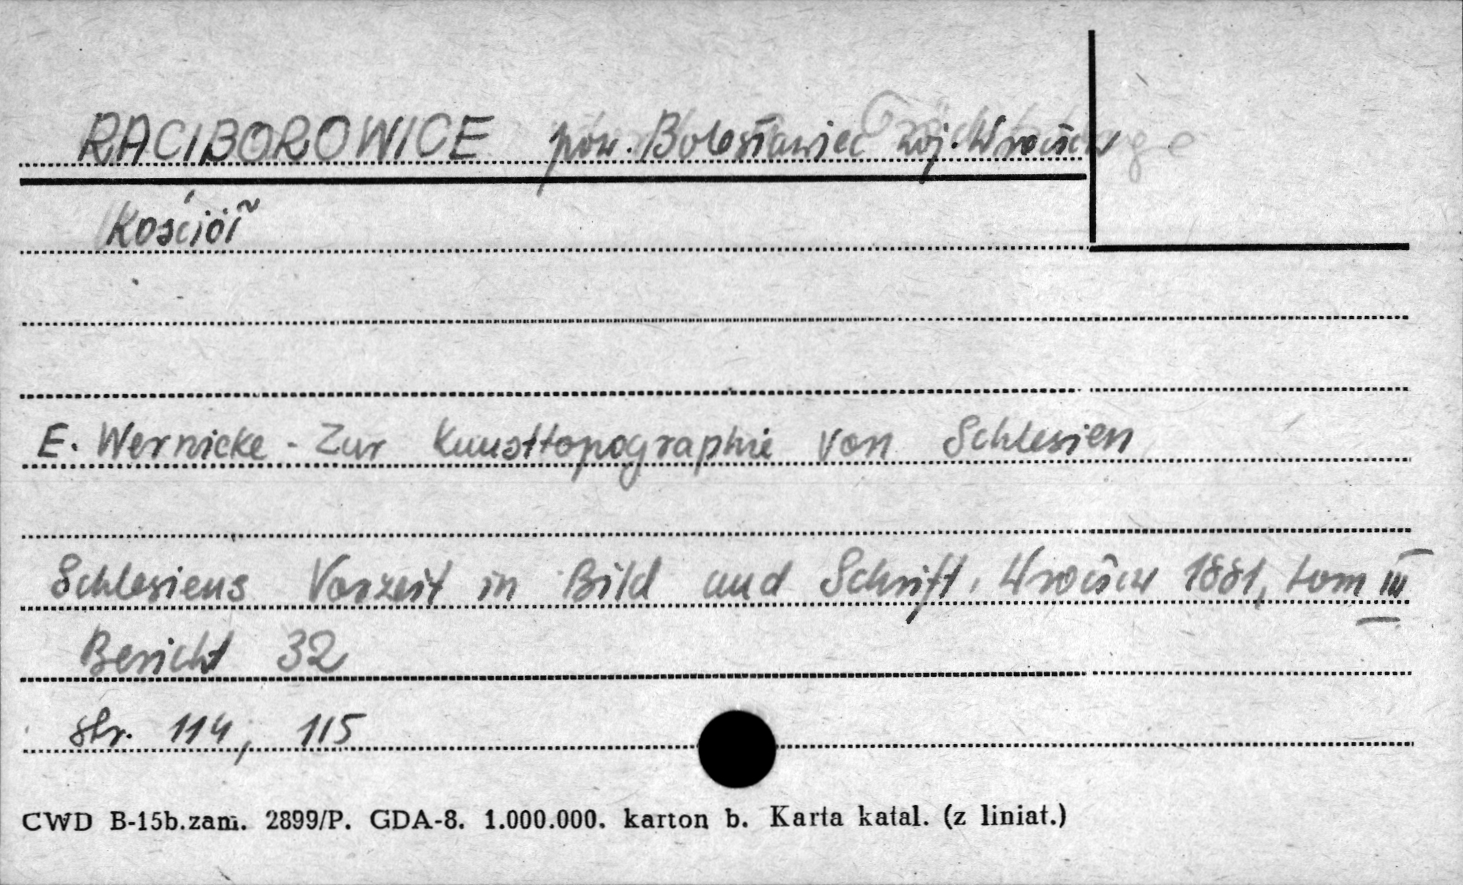 RACIBOROWICE pow. Bolesławiec woj. Wrocław
Kościół
E. Wernicke - Zur Kunsttopographie von Schlesien
Schlesiens Vorzeit in Bild und Schrift, Wrocław 1881, tom III
Bericht 32
str. 114, 115
CWD B-15b.zam. 2899/P. GDA-8. 1.000.000. karton b. Karta katal. (z liniat.)